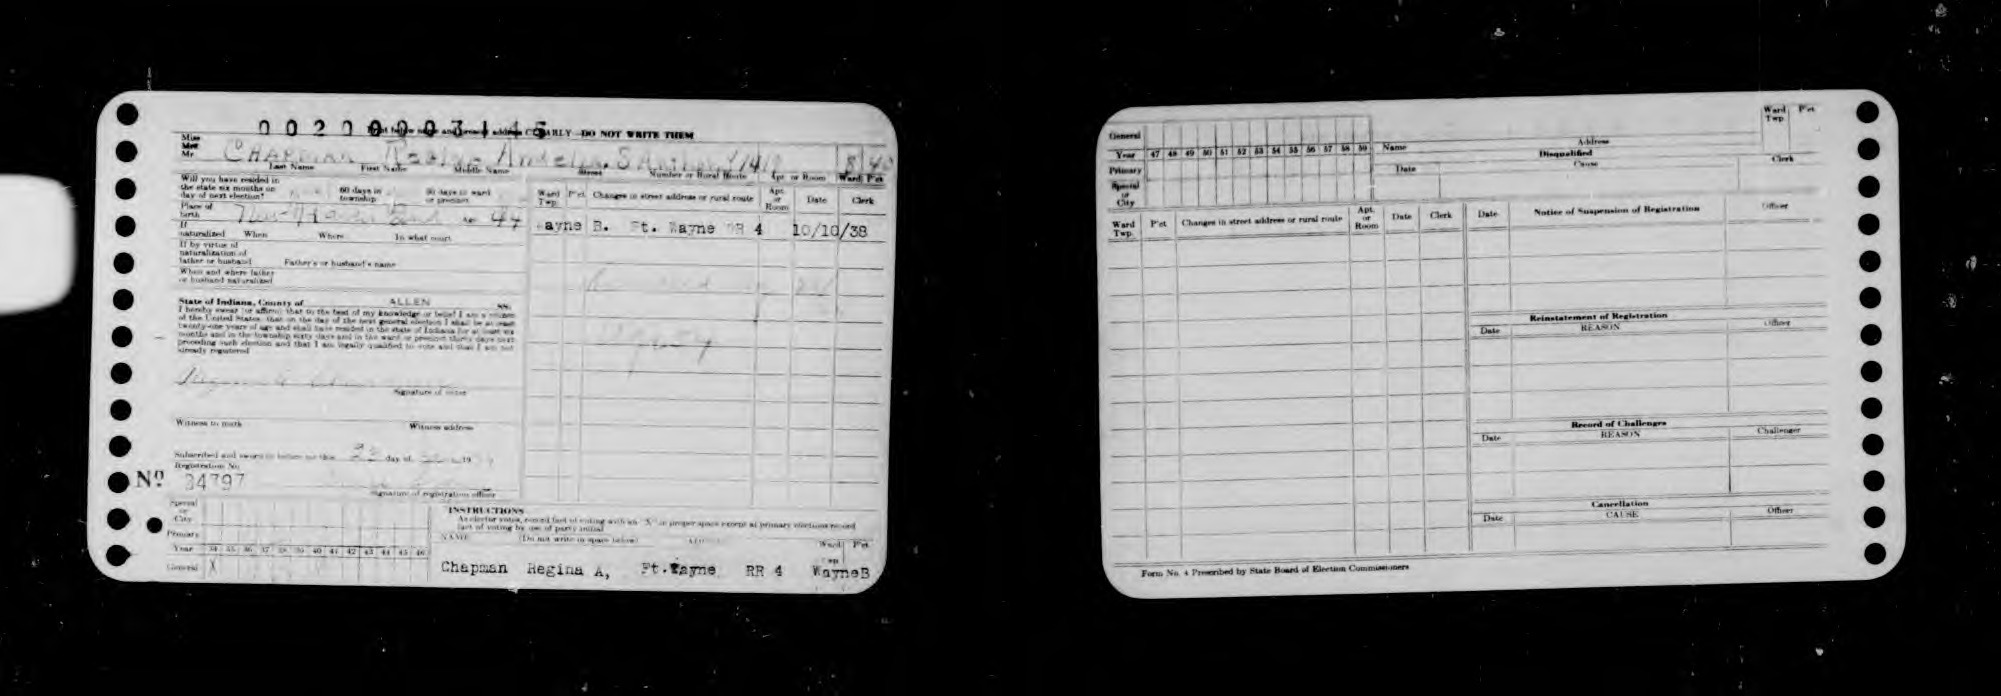 00200003145
Print below name and present address CLEARLY—DO NOT WRITE THEM
Miss
Mrs
Mr.
CHAPMAN Regina 8 40
Last Name First Name Middle Name Street Number or Rural Route Apt. or Room Ward P'ct.
Will you have resided in
the state six months on
day of next election?
60 days in
township
30 days in ward
or precinct
Place of
birth New Haven Age 44
If
naturalized When Where In what court
If by virtue of
naturalization of
father or husband Father's or husband's name
When and where father
or husband naturalized
State of Indiana, County of ALLEN SS.
I hereby swear (or affirm) that to the best of my knowledge or belief I am a citizen
of the United States, that on the day of the next general election I shall be at least
twenty-one years of age and shall have resided in the state of Indiana for at least six
months and in the township sixty days and in the ward or precinct thirty days next
preceding such election and that I am legally qualified to vote and that I am not
already registered
Signature of voter
Witness to mark Witness address
Subscribed and sworn to before me this 23 day of 19
Registration No.
Nº 34797
Signature of registration officer
Ward
Twp. P'ct. Changes in street address or rural route Apt.
or
Room Date Clerk
ayne B. Ft. Wayne RR 4 10/10/38
Special
or
City
Primary
Year 34 35 36 37 38 39 40 41 42 43 44 45 46
General X
INSTRUCTIONS
As elector votes, record fact of voting with an "X" in proper space except at primary elections record
fact of voting by use of party initial
NAME (Do not write in space below) Ward P'ct.
Twp
Chapman Regina A, Ft.Wayne RR 4 WayneB
Ward
Twp. P'ct.
General
Year 47 48 49 50 51 52 53 54 55 56 57 58 59
Primary
Special
or
City
Name Address
Disqualified
Date Cause Clerk
Ward
Twp. P'ct. Changes in street address or rural route Apt.
or
Room Date Clerk
Date Notice of Suspension of Registration Officer
Reinstatement of Registration
Date REASON Officer
Record of Challenges
Date REASON Challenger
Cancellation
Date CAUSE Officer
Form No. 4 Prescribed by State Board of Election Commissioners